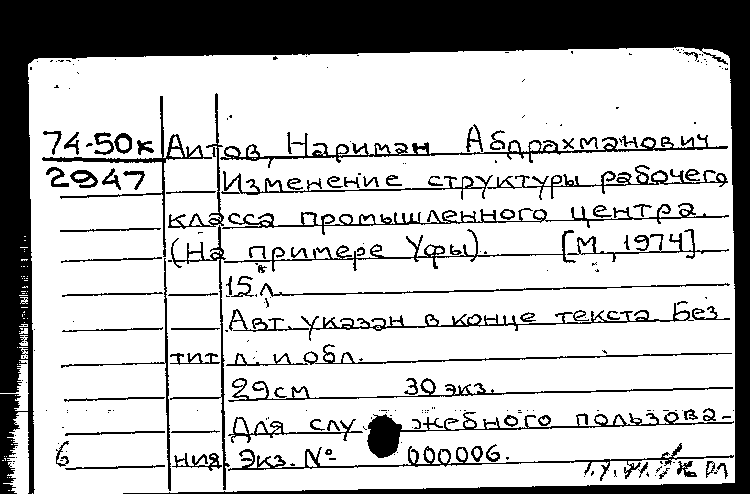 74-50к Аитов, Нариман Абдрахманович
2947 Изменение структуры рабочего
класса промышленного центра.
(На примере Уфы). [М., 1974].
15 л.
Авт. указан в конце текста. Без
тит. л. и обл.
29 см 30 экз.
Для служебного пользова-
6 ния. Экз. № 000006.